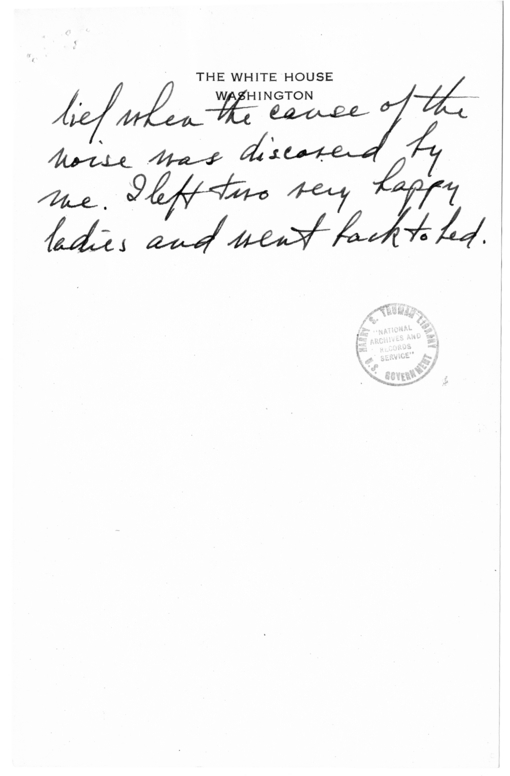 THE WHITE HOUSE
WASHINGTON
lief when the cause of the
noise was discovered by
me. I left two very happy
ladies and went back to bed.
HARRY S. TRUMAN LIBRARY
"NATIONAL
ARCHIVES AND
RECORDS
SERVICE"
U.S. GOVERNMENT